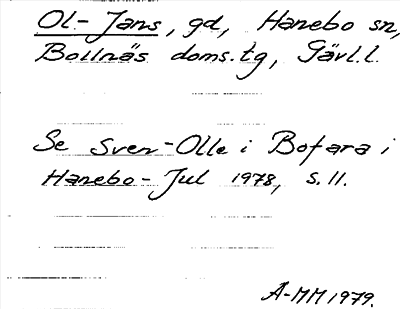 Ol-Jans, gd, Hanebo sn,
Bollnäs doms.tg, Gävl.l.
Se Sven-Olle i Bofara i
Hanebo-Jul 1978, s.11.
A-MM 1979.